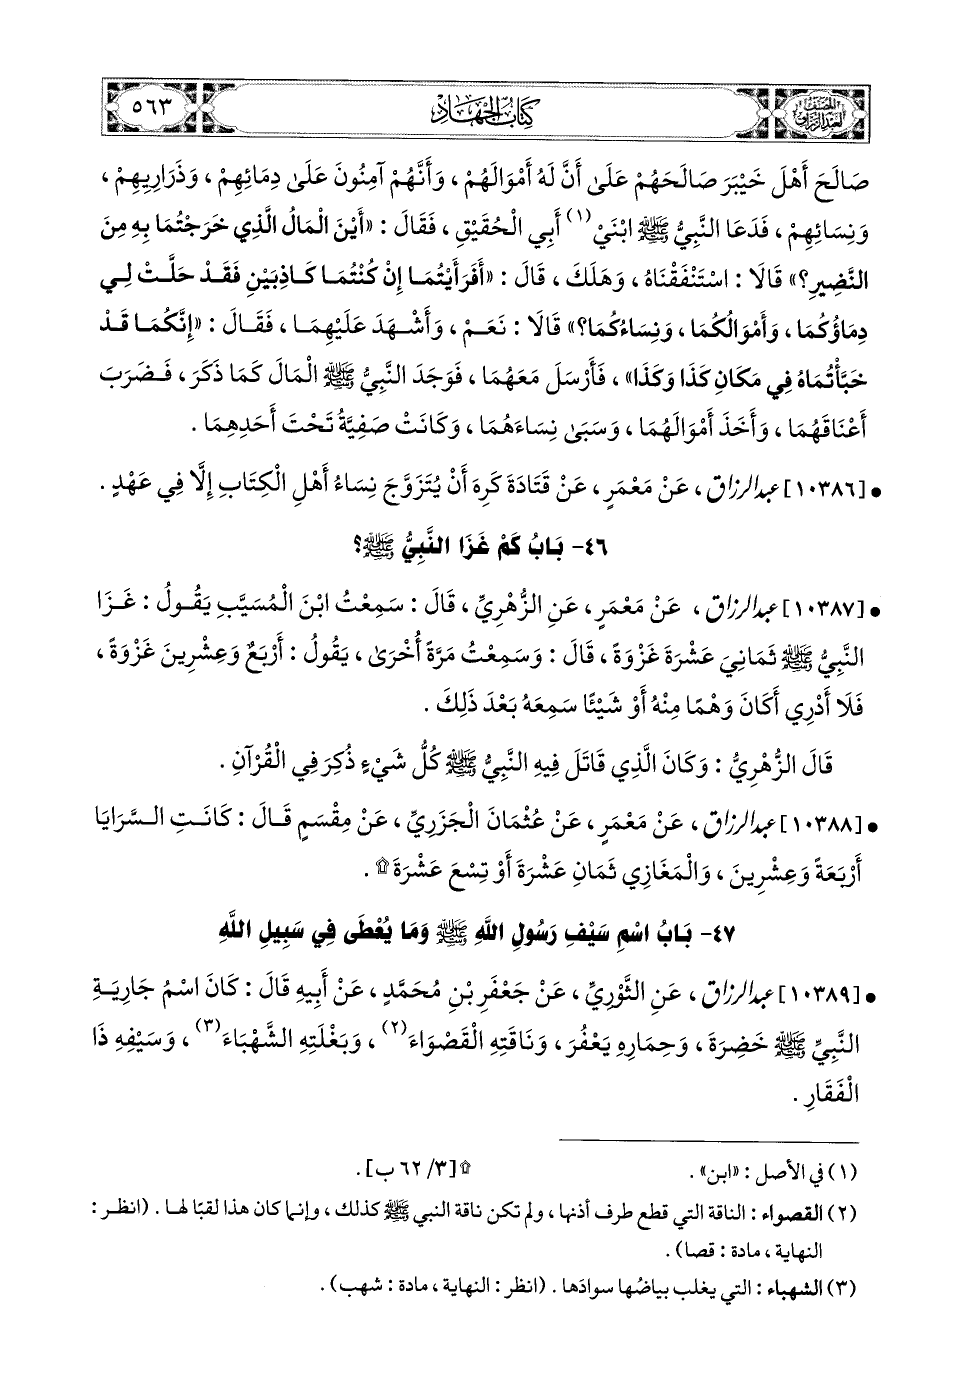 المصنف
لعبد الرزاق
كتاب الجهاد
٥٦٣
صَالَحَ أَهْلَ خَيْبَرَ صَالَحَهُمْ عَلَى أَنَّ لَهُ أَمْوَالَهُمْ، وَأَنَّهُمْ آمِنُونَ عَلَى دِمَائِهِمْ، وَذَرَارِيهِمْ،
وَنِسَائِهِمْ، فَدَعَا النَّبِيُّ ﷺ ابْنَيْ(١) أَبِي الْحُقَيْقِ، فَقَالَ: «أَيْنَ الْمَالُ الَّذِي خَرَجْتُمَا بِهِ مِنَ
النَّضِيرِ؟» قَالَا: اسْتَنْفَقْنَاهُ، وَهَلَكَ، قَالَ: «أَفَرَأَيْتُمَا إِنْ كُنْتُمَا كَاذِبَيْنِ فَقَدْ حَلَّتْ لِي
دِمَاؤُكُمَا، وَأَمْوَالُكُمَا، وَنِسَاءُكُمَا؟» قَالَا: نَعَمْ، وَأَشْهَدَ عَلَيْهِمَا، فَقَالَ: «إِنَّكُمَا قَدْ
خَبَأْتُمَاهُ فِي مَكَانِ كَذَا وَكَذَا»، فَأَرْسَلَ مَعَهُمَا، فَوَجَدَ النَّبِيُّ ﷺ الْمَالَ كَمَا ذَكَرَ، فَضَرَبَ
أَعْنَاقَهُمَا، وَأَخَذَ أَمْوَالَهُمَا، وَسَبَى نِسَاءَهُمَا، وَكَانَتْ صَفِيَّةُ تَحْتَ أَحَدِهِمَا.
• [١٠٣٨٦] عبد الرزاق، عَنْ مَعْمَرٍ، عَنْ قَتَادَةَ كَرِهَ أَنْ يُتَزَوَّجَ نِسَاءُ أَهْلِ الْكِتَابِ إِلَّا فِي عَهْدٍ.
٤٦- بَابُ كَمْ غَزَا النَّبِيُّ ﷺ؟
• [١٠٣٨٧] عبد الرزاق، عَنْ مَعْمَرٍ، عَنِ الزُّهْرِيِّ، قَالَ: سَمِعْتُ ابْنَ الْمُسَيَّبِ يَقُولُ: غَزَا
النَّبِيُّ ﷺ ثَمَانِيَ عَشْرَةَ غَزْوَةً، قَالَ: وَسَمِعْتُ مَرَّةً أُخْرَى، يَقُولُ: أَرْبَعٌ وَعِشْرِينَ غَزْوَةً،
فَلَا أَدْرِي أَكَانَ وَهْمًا مِنْهُ أَوْ شَيْئًا سَمِعَهُ بَعْدَ ذَلِكَ.
قَالَ الزُّهْرِيُّ: وَكَانَ الَّذِي قَاتَلَ فِيهِ النَّبِيُّ ﷺ كُلُّ شَيْءٍ ذُكِرَ فِي الْقُرْآنِ.
• [١٠٣٨٨] عبد الرزاق، عَنْ مَعْمَرٍ، عَنْ عُثْمَانَ الْجَزَرِيِّ، عَنْ مِقْسَمٍ قَالَ: كَانَتِ السَّرَايَا
أَرْبَعَةً وَعِشْرِينَ، وَالْمَغَازِي ثَمَانِ عَشْرَةَ أَوْ تِسْعَ عَشْرَةَ ۩.
٤٧- بَابُ اسْمِ سَيْفِ رَسُولِ اللَّهِ ﷺ وَمَا يُعْطَى فِي سَبِيلِ اللَّهِ
• [١٠٣٨٩] عبد الرزاق، عَنِ الثَّوْرِيِّ، عَنْ جَعْفَرِ بْنِ مُحَمَّدٍ، عَنْ أَبِيهِ قَالَ: كَانَ اسْمُ جَارِيَةِ
النَّبِيِّ ﷺ خَضِرَةَ، وَحِمَارِهِ يَعْفُرَ، وَنَاقَتِهِ الْقَصْوَاءَ(٢)، وَبَغْلَتِهِ الشَّهْبَاءَ(٣)، وَسَيْفِهِ ذَا
الْفَقَارِ.
(١) في الأصل: «ابن». ۩ [٣/ ٦٢ ب].
(٢) القصواء: الناقة التي قطع طرف أذنها، ولم تكن ناقة النبي ﷺ كذلك، وإنما كان هذا لقبًا لها. (انظر:
النهاية، مادة: قصا).
(٣) الشهباء: التي يغلب بياضُها سوادَها. (انظر: النهاية، مادة: شهب).